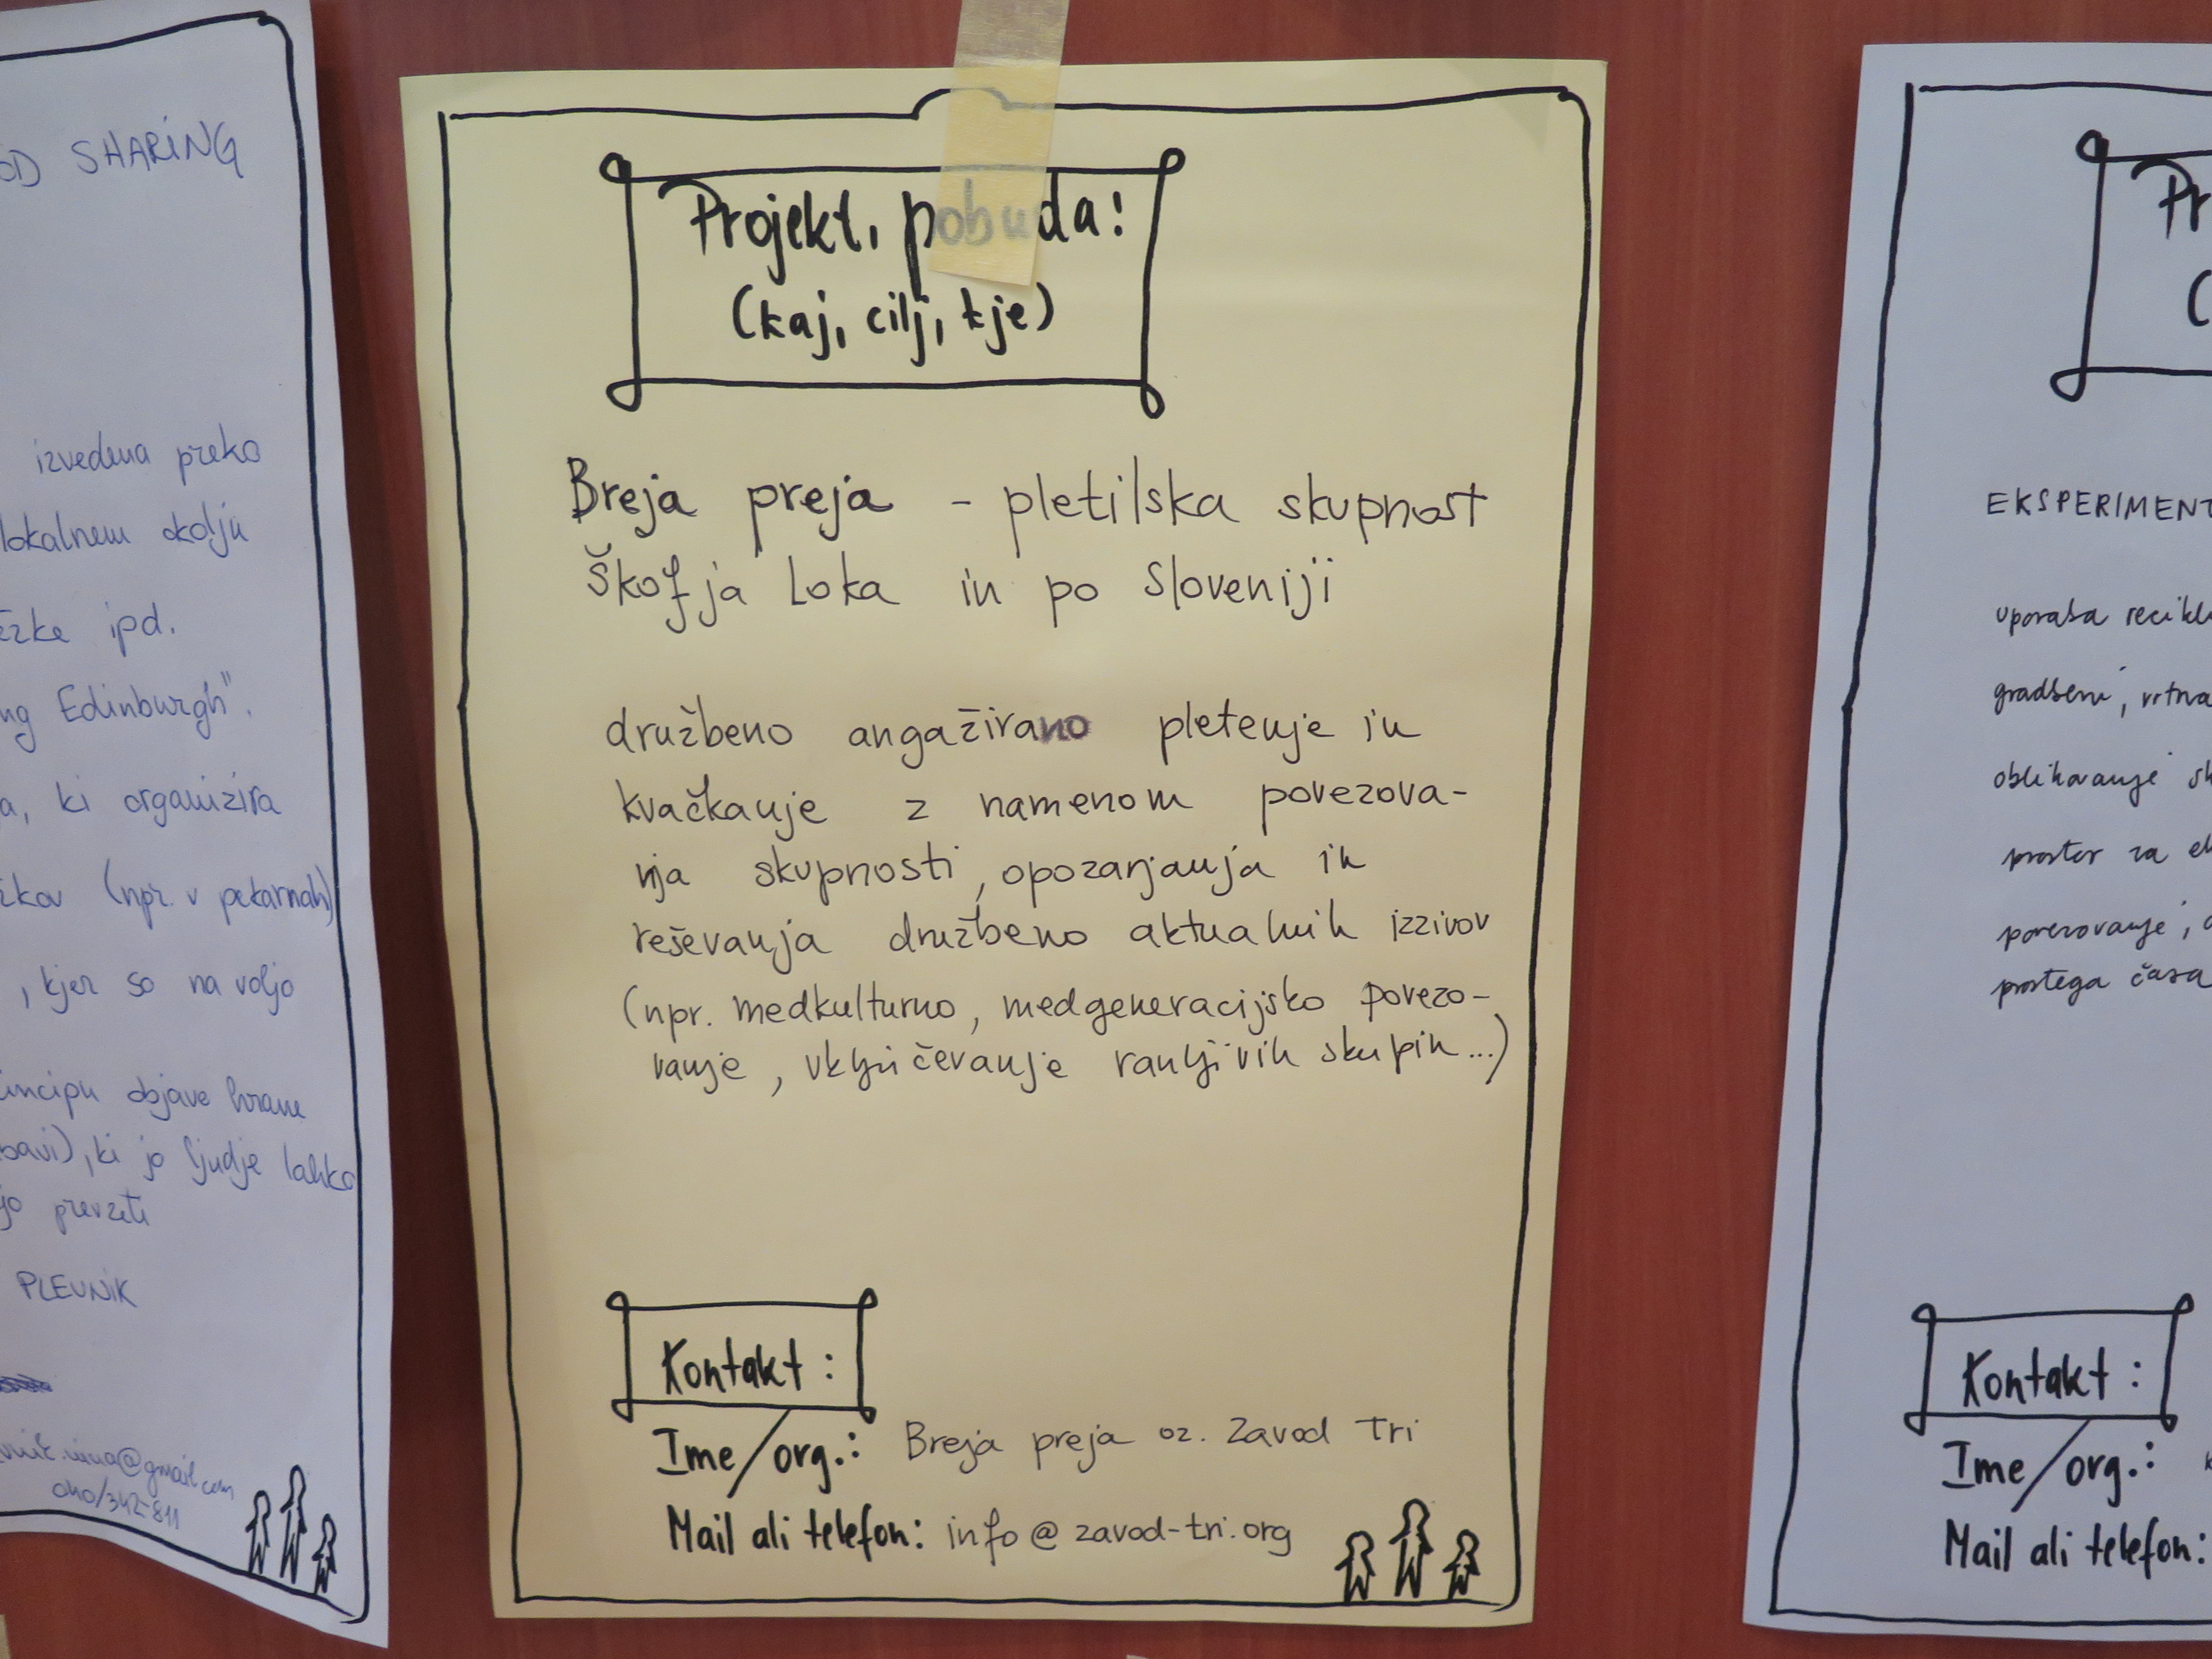 OD SHARING
izvedena preko
lokalnem okolju
ipd.
ng Edinburgh".
a, ki organizira
(npr. v pekarnah)
, kjer so na voljo
incipu objave hrane
, ki jo ljudje lahko
jo prevzeti
PLEVNIK
@gmail.com
040/342-811
Projekt, pobuda!
(kaj, cilj, kje)
Breja preja - pletilska skupnost
Škofja Loka in po Sloveniji
družbeno angažirano pletenje in
kvačkanje z namenom povezova-
nja skupnosti, opozarjanja in
reševanja družbeno aktualnih izzivov
(npr. medkulturno, medgeneracijsko povezo-
vanje, vključevanje ranljivih skupin...)
Kontakt:
Ime/org.: Breja preja oz. Zavod Tri
Mail ali telefon: info@zavod-tri.org
Pr
(
EKSPERIMENT
uporaba recikl
gradbeni, vrtna
oblikovanje sk
prostor za ek
povezovanje,
prostega časa
Kontakt:
Ime/org.:
Mail ali telefon: